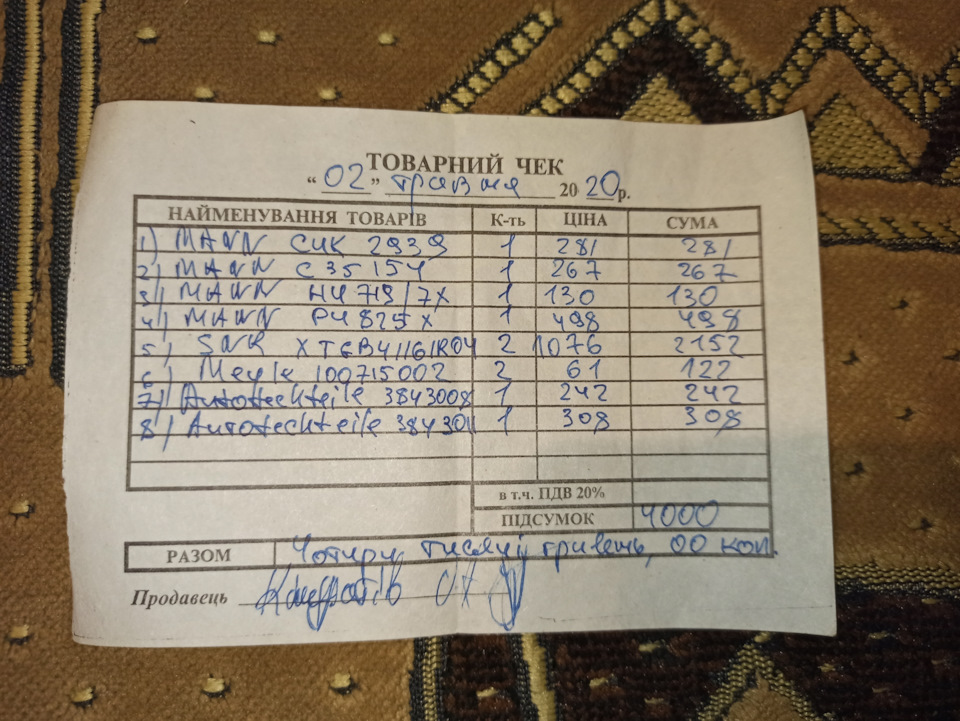 ТОВАРНИЙ ЧЕК
“ 02 ” травня 20 20 р.
НАЙМЕНУВАННЯ ТОВАРІВ К-ть ЦІНА СУМА
1) MANN CUK 2939 1 281 281
2) MANN C 35 154 1 267 267
3) MANN HU 719/7X 1 130 130
4) MANN PU 825 X 1 498 498
5) SNR XTGB41161R04 2 1076 2152
6) Meyle 100715002 2 61 122
7) Autotechteile 3843008 1 242 242
8) Autotechteile 384301 1 308 308
в т.ч. ПДВ 20%
ПІДСУМОК 4000
РАЗОМ Чотири тисячі гривень, 00 коп.
Продавець